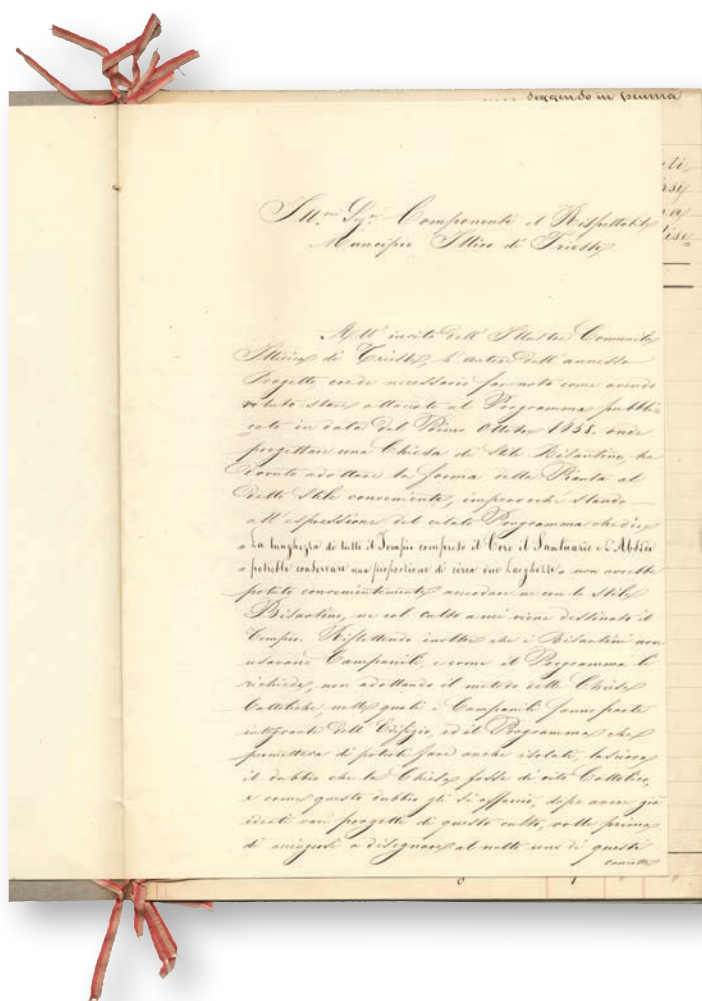 seggendo in piuma
Ill.mi Sig.i Componenti il Rispettabile
Municipio Illirico di Trieste
All' invito dell' Illustre Comunità
Illirica di Trieste, l' autore dell' annesso
Progetto crede necessario far noto come avendo
voluto stare attaccato al Programma pubbli-
cato in data del Primo Ottobre 1858. onde
progettare una Chiesa di stile Bisantino, ha
dovuto adottare la forma della Pianta al
detto stile conveniente, imperocchè stando
all' espressione del citato Programma che dice
« La lunghezza di tutto il Tempio compreso il Coro il Santuario e l'Abside
« potrebbe conservare una proporzione di circa due larghezze » non avrebbe
potuto convenientemente accordare ne con lo stile
Bisantino, ne col culto a cui viene destinato il
Tempio. Riflettendo inoltre che i Bisantini non
usavano Campanili, e come il Programma li
richiede, non adottando il metodo delle Chiese
Cattoliche, nelle quali i Campanili fanno parte
integrante dell' Edifizio, ed il Programma che
permetteva di poterli fare anche isolati, lasciava
il dubbio che la Chiesa fosse di rito Cattolico,
e come questo dubbio gli si affacciò, dopo avere già
ideati vari progetti di questo culto, volle prima
di accingersi a disegnare al netto uno di questi